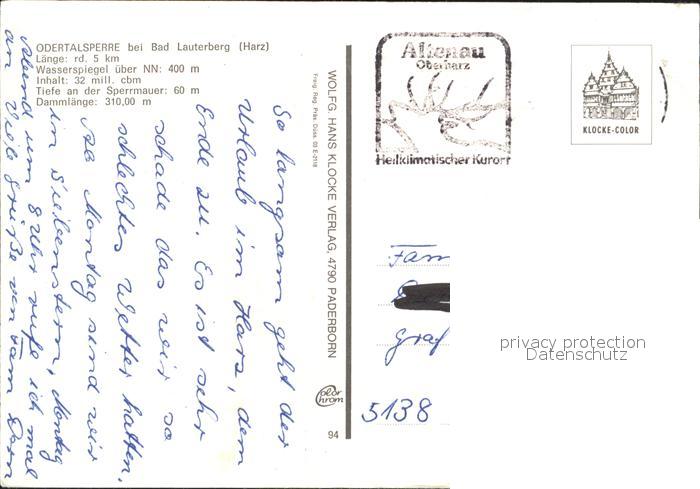 ODERTALSPERRE bei Bad Lauterberg (Harz)
Länge: rd. 5 km
Wasserspiegel über NN: 400 m
Inhalt: 32 mill. cbm
Tiefe an der Sperrmauer: 60 m
Dammlänge: 310,00 m
So langsam geht der
Urlaub im Harz, dem
Ende zu. Es ist sehr
schade das wir so
schlechtes Wetter hatten.
Ab Montag sind wir
in Siebenstern, Montag
Abend um 8 Uhr rufe ich mal
an Viele Grüße von Fam
WOLFG. HANS KLOCKE VERLAG, 4790 PADERBORN
Freig. Reg. Präs. Düss.
Color
chrom
94
Altenau
Oberharz
Heilklimatischer Kurort
KLOCKE-COLOR
Fam
Graf
5138
privacy protection
Datenschutz